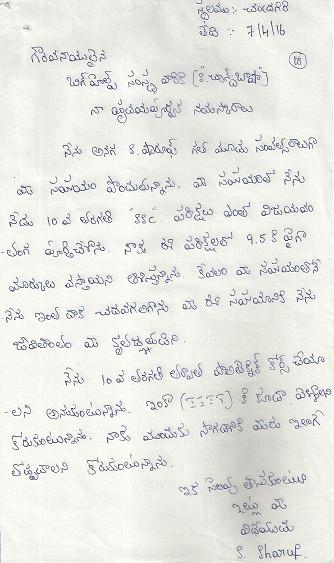 స్థలము :- చందగిరి
తేది :- 7/4/16
గౌరవనీయులైన
బిగ్ హెల్ప్ సంస్థ వారికి (కె. చాన్ద్ బాషా)
నా హృదయపూర్వక నమస్కారాలు
నేను అనగ కె. షారూఫ్ గత మూడు సంవత్సరాలుగా
మీ సహాయం పొందుతున్నాను. మీ సహాయంతో నేను
నేడు 10 వ తరగతి SSC పరీక్షలు ఎంతో విజయవం
-తంగ పూర్తిచేసాను. నాకు ఈ పరీక్షలలో 9.5 కి పైగా
మార్కులు వస్తాయని ఆశిస్తున్నాను. కేవలం మీ సహాయంతోనే
నేను ఇంత దాకా చదవగలిగాను. మీ ఈ సహాయానికి నేను
జీవితాంతం మీ కృతజ్ఞుడిని.
నేను 10 వ తరగతి తర్వాత పాలిటెక్నిక్ కోర్స్ చేయా
-లని అనుకుంటున్నాను. ఇంకా (IIIT) కి కూడా వెళ్ళాలని
కోరుకుంటున్నాను. నాకు ముందుకు సాగడానికి మీరు ఇలాగే
తోడ్పడాలని కోరుకుంటున్నాను.
ఇక సెలవు తీసుకుంటూ
ఇట్లు మీ
విధేయుడు
S. Sharuf.